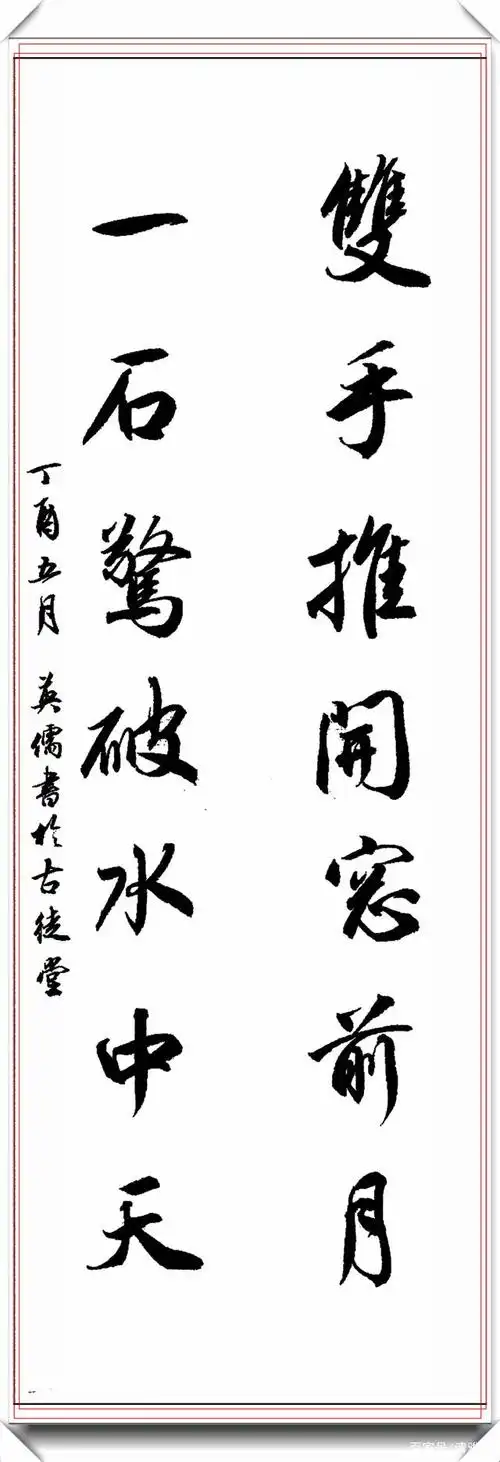 雙手推開窓前月
一石驚破水中天
丁酉五月 英儒書於古徒堂